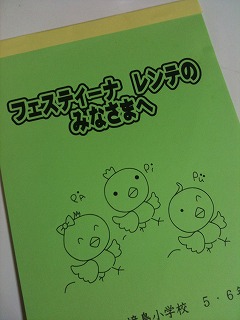 フェスティーナ レンテの
みなさまへ
Pa
Pi
Pu
島小学校 5・6年